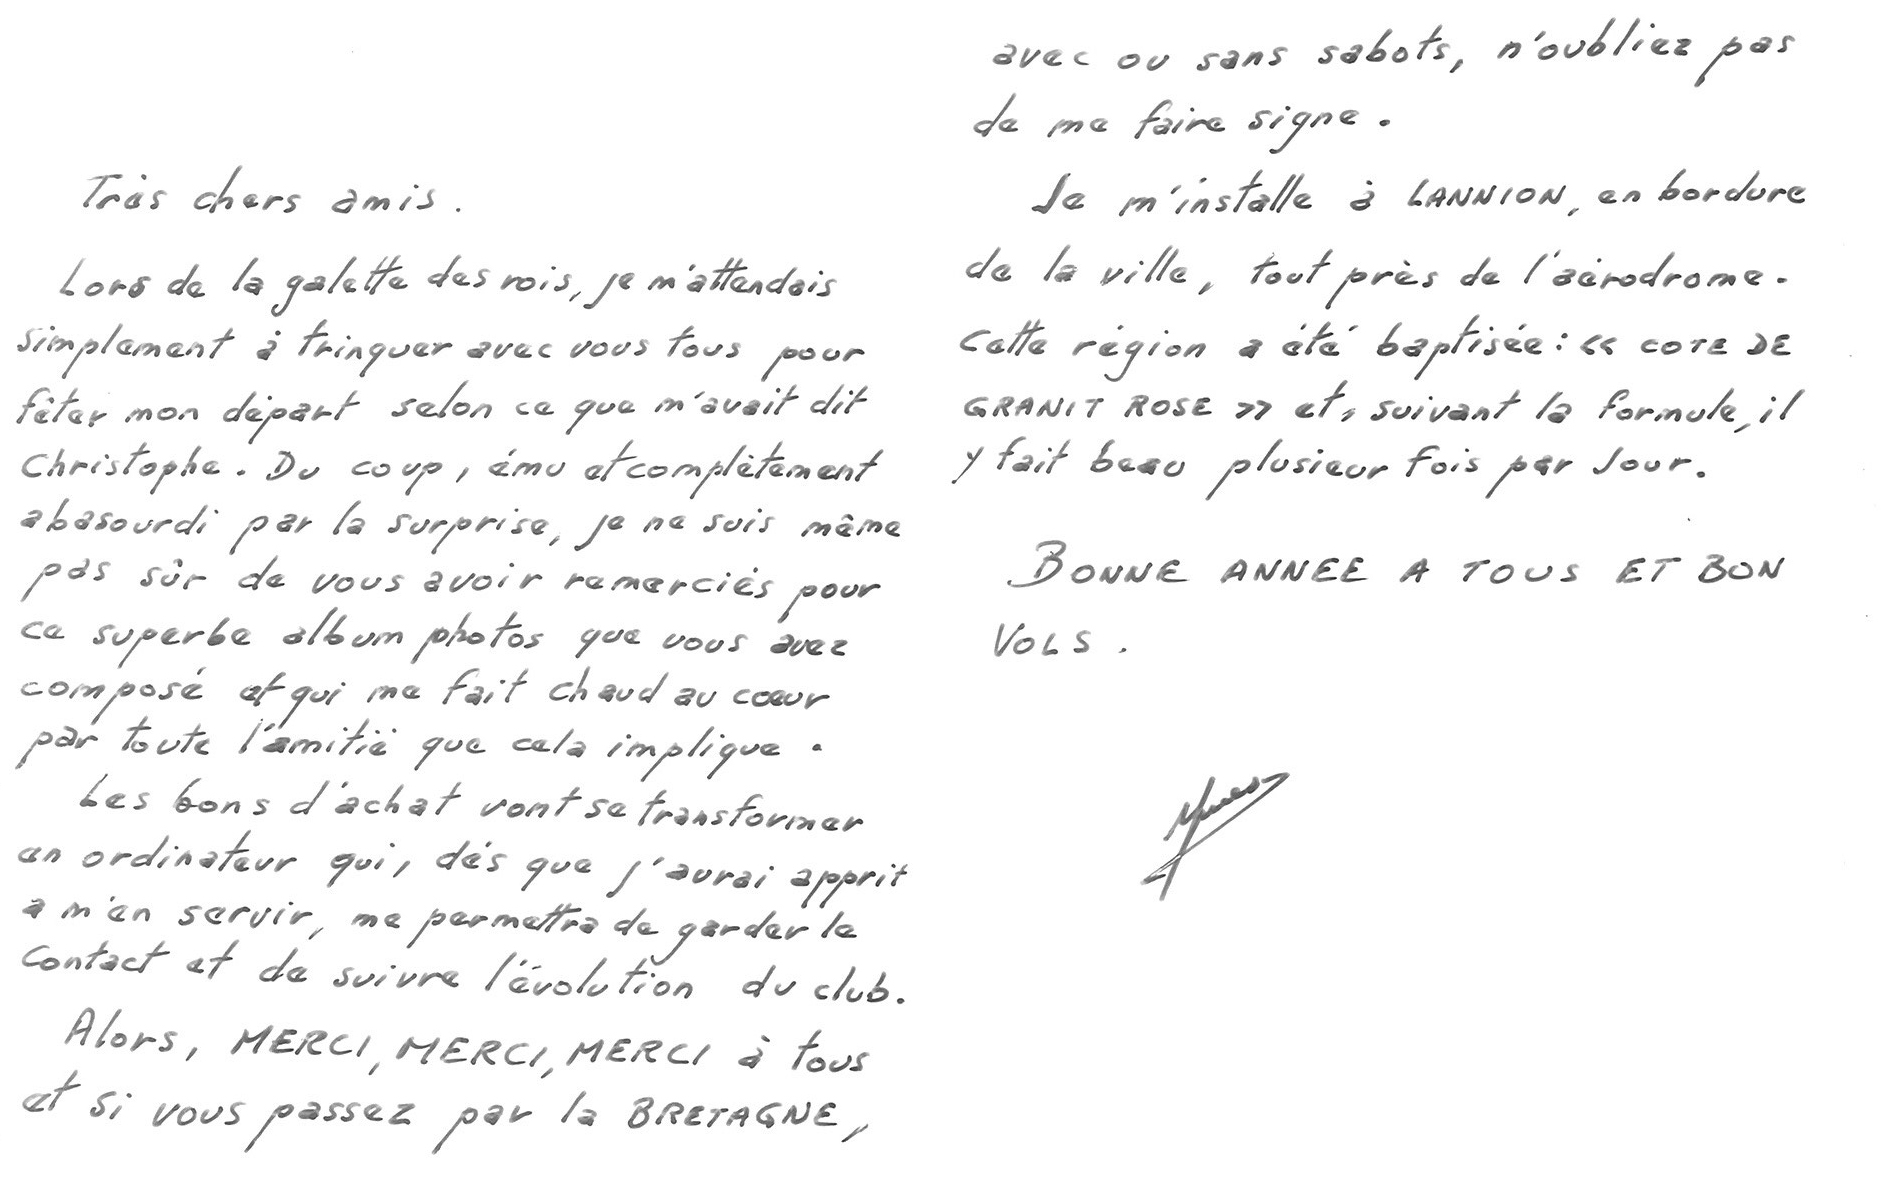 Très chers amis.
Lors de la galette des rois, je m'attendais
simplement à trinquer avec vous tous pour
fêter mon départ selon ce que m'avait dit
Christophe. Du coup, ému et complètement
abasourdi par la surprise, je ne suis même
pas sûr de vous avoir remerciés pour
ce superbe album photos que vous avez
composé et qui me fait chaud au cœur
par toute l'amitié que cela implique.
Les bons d'achat vont se transformer
en ordinateur qui, dés que j'aurai apprit
a m'en servir, me permettra de garder le
contact et de suivre l'évolution du club.
Alors, MERCI, MERCI, MERCI à tous
et si vous passez par la BRETAGNE,
avec ou sans sabots, n'oubliez pas
de me faire signe.
Je m'installe à LANNION, en bordure
de la ville, tout près de l'aérodrome.
Cette région a été baptisée : « COTE DE
GRANIT ROSE » et, suivant la formule, il
y fait beau plusieur fois par Jour.
BONNE ANNEE A TOUS ET BON
VOLS.